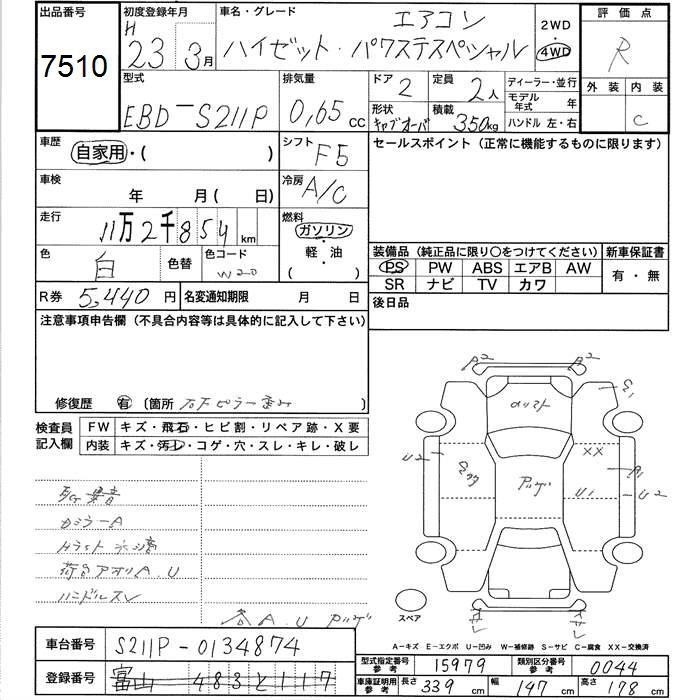 出品番号 初度登録年月 車名・グレード 評価点
7510 H 23 3月 エアコン ハイゼット・パワステスペシャル 2WD・4WD R
型式 排気量 ドア 定員 ディーラー・並行 外装 内装
EBD-S211P 0,65 cc 2 2人 モデル年式 年 C
形状 キャブオーバ 積載 350kg ハンドル 左・右
車歴 自家用・( ) シフト F5 セールスポイント(正常に機能するものに限ります)
車検 年 月( 日) 冷房 A/C
走行 11万2千854km 燃料 ガソリン・軽油 ( )
色 白 色替 色コード W20
装備品(純正品に限り○をつけてください) 新車保証書
PS PW ABS エアB AW 有・無
SR ナビ TV カワ
R券 5,440円 名変通知期限 月 日 後日品
注意事項申告欄(不具合内容等は具体的に記入して下さい)
修復歴 有 (箇所
検査員記入欄 FW キズ・飛石・ヒビ割・リペア跡・X要
内装 キズ・汚レ・コゲ・穴・スレ・キレ・破レ
A2 A2
E1
U2 XX A1
U1 U2
カミラーA
ハンドルスレ
スペア
A-キズ E-エクボ U-凹み W-補修跡 S-サビ C-腐食 XX-交換済
車台番号 S211P-0134874
型式指定番号 参考 15979 類別区分番号 参考 0044
登録番号 富山 483と117
車庫証明用 参考 長さ 339cm 幅 147cm 高さ 178cm